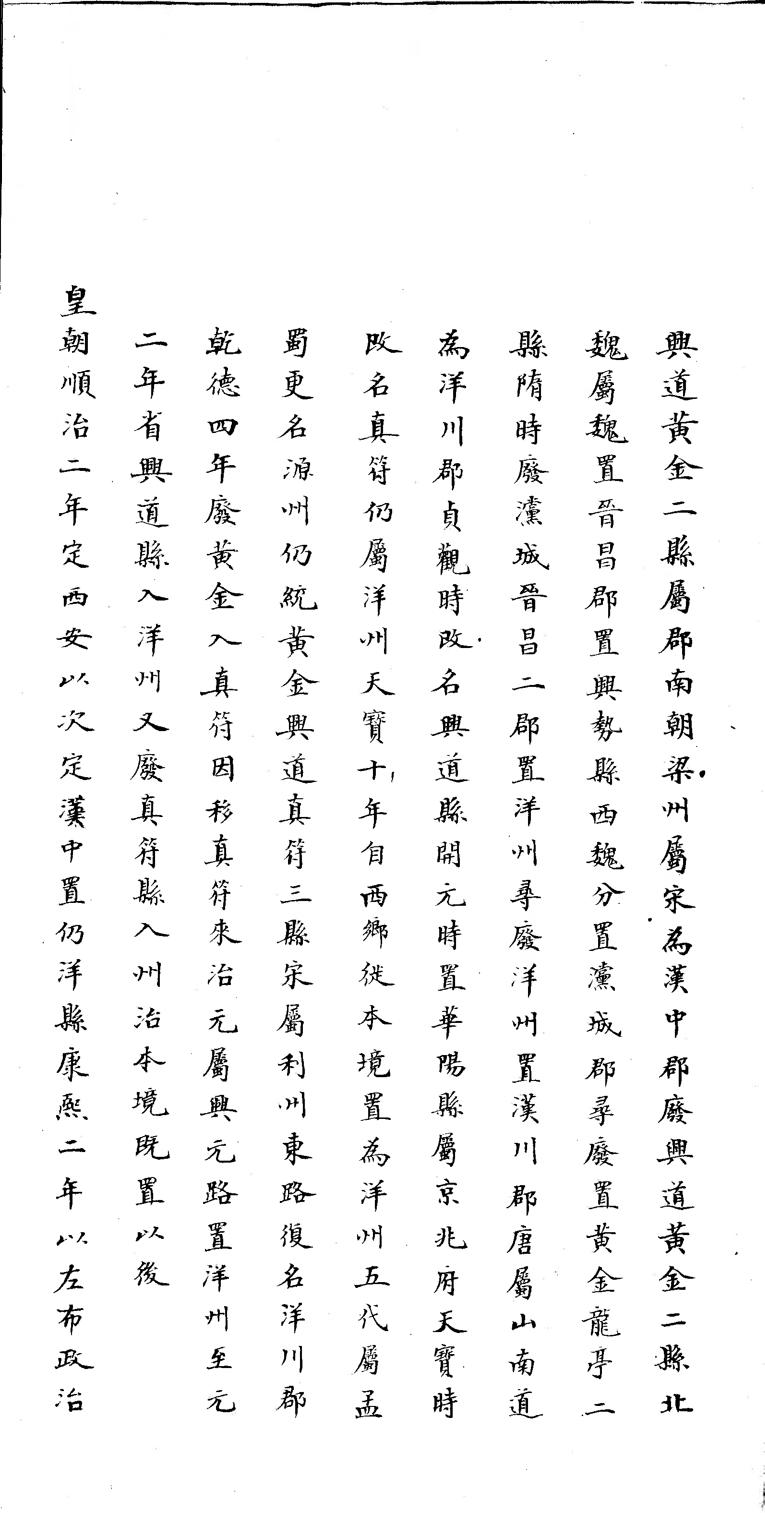 興道黃金二縣屬郡南朝梁州屬宋為漢中郡廢興道黃金二縣北
魏屬魏置晉昌郡置興勢縣西魏分置灙城郡尋廢置黃金龍亭二
縣隋時廢灙城晉昌二郡置洋州尋廢洋州置漢川郡唐屬山南道
為洋川郡貞觀時改名興道縣開元時置華陽縣屬京兆府天寶時
改名真符仍屬洋州天寶十年自西鄉徙本境置為洋州五代屬孟
蜀更名源州仍統黃金興道真符三縣宋屬利州東路復名洋川郡
乾德四年廢黃金入真符因移真符來治元屬興元路置洋州至元
二年省興道縣入洋州又廢真符縣入州治本境既置以後
皇朝順治二年定西安以次定漢中置仍洋縣康熙二年以左布政治